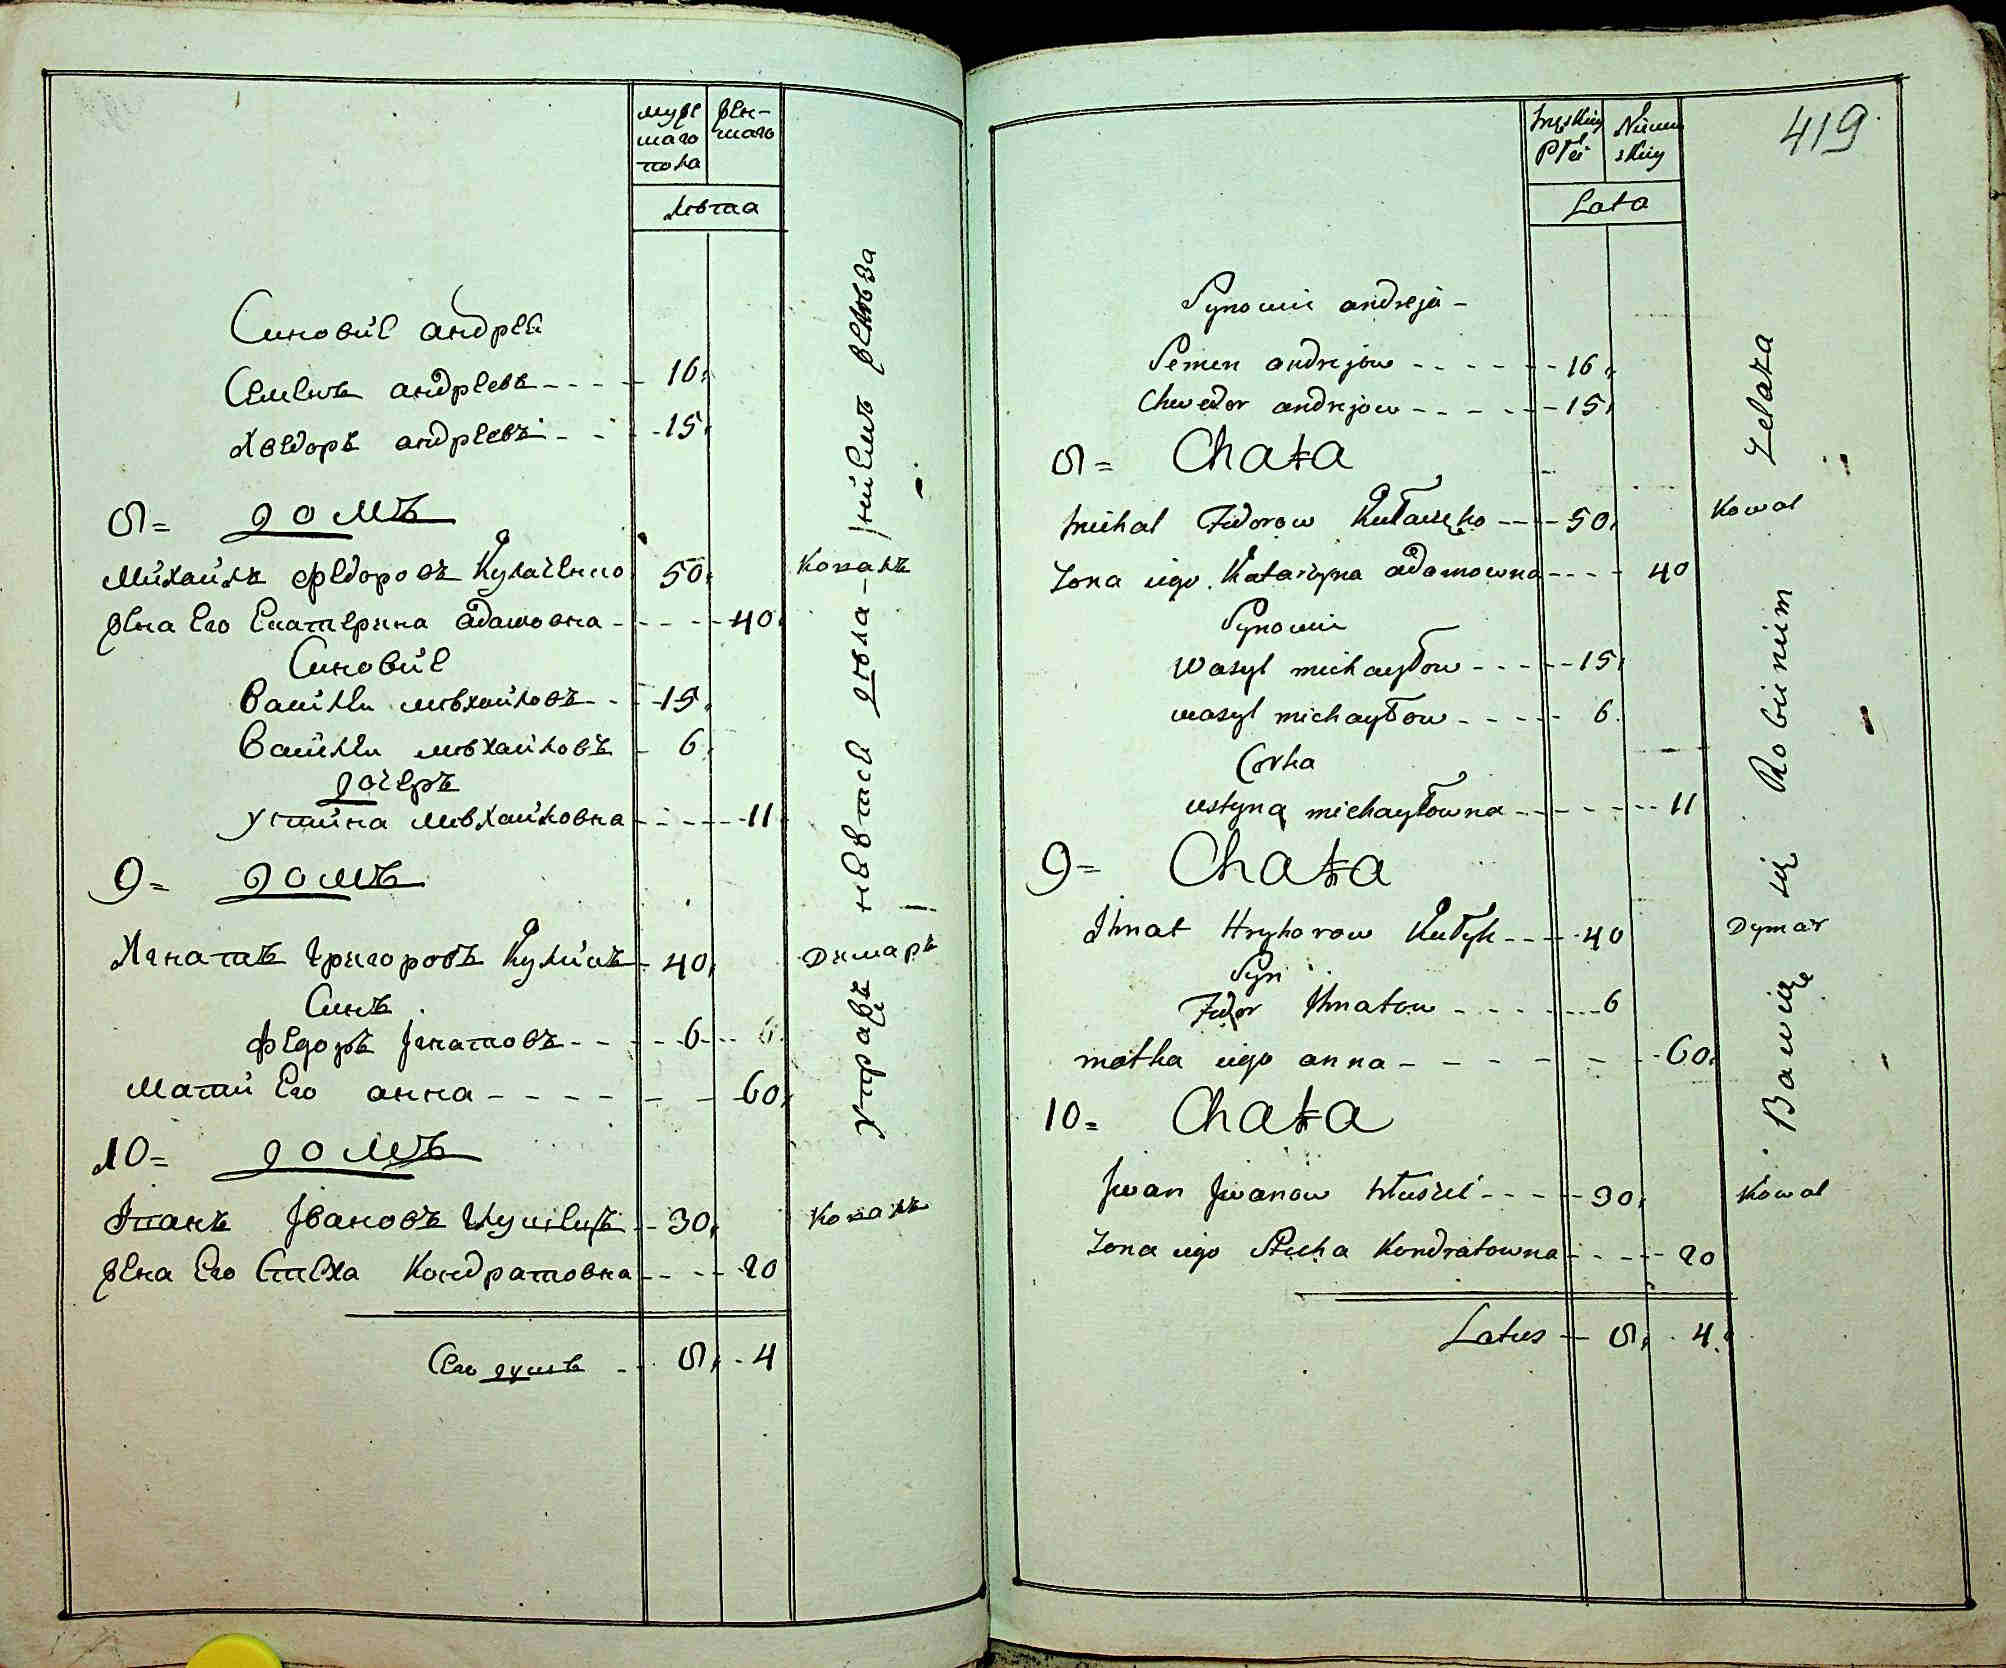 муже
ска го
пола
жен-
скаго
лѣта
Синовіе андрея
Семенъ андреевъ - - - - 16
Хведоръ андреевъ - - - 15
8= домъ
Михаилъ Федоровъ Кулаченко 50 Ковалъ
жена Его Екатерина адамовна - - - - 40
Синовіе
Василіи мѣхайловъ - - - 15
Василіи мѣхайловъ - 6
дочеръ
Устина мѣхайловна - - - - - 11
9= домъ
Игнатъ Григоровъ Куликъ - 40 Димаръ
Синъ
Федоръ Ігнатовъ - - - - 6
Мати Его анна - - - - - - - 60
10= домъ
Іванъ Івановъ - 30 Ковалъ
жена Его Стеха Кондратовна - - - - 20
Сего душъ - 8 - 4
дѣла желѣза
419
męskiey
Płci
Niewie
skiey
Lata
Synowie andreja -
Semen andrejow - - - - - - 16
Chwedor andrejow - - - - - 15
8= Chata
Michał Fedorow Kułaczęko - - - 50 Kowal
Zona iego Katarzyna adamowna - - - - 40
Synowie
Wasyl michayłow - - - - - 15
wasyl michayłow - - - - - 6
Corka
ustyna michayłowna - - - - - - - 11
9= Chata
Ihnat Hryhorow Kułyk - - - - 40 Dymar
Syn
Fedor Ihnatow - - - - - - - - 6
matka iego anna - - - - - - - 60
10= Chata
Jwan Jwanow - - - - 30 Kowal
Zona iego Stecha Kondratowna - - - - 20
Latus - 8 4
Bawią się Robieniem Zelaza